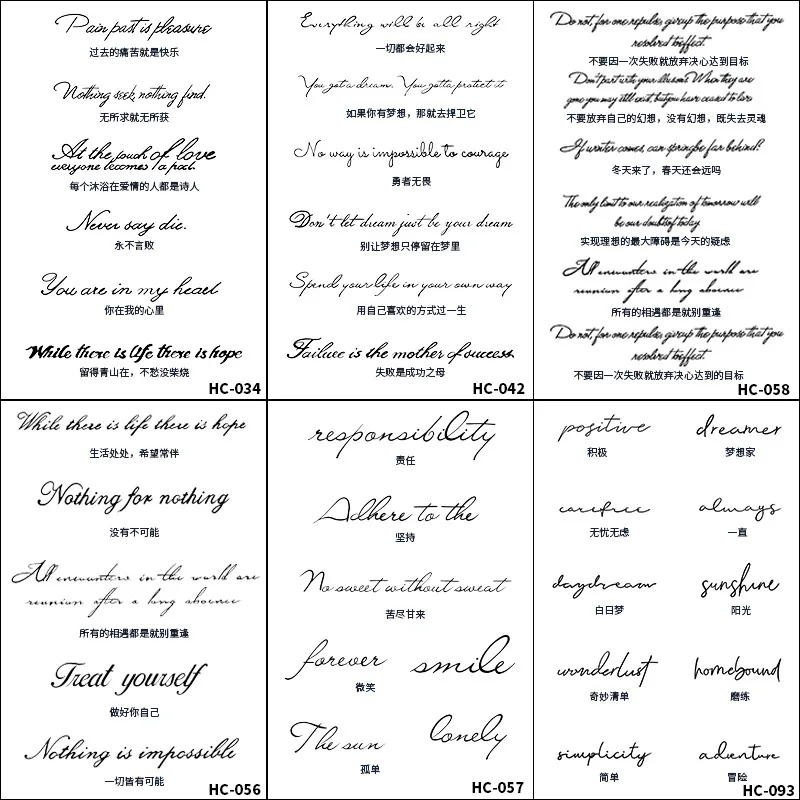 Pain past is pleasure
过去的痛苦就是快乐
Nothing seek, nothing find.
无所求就无所获
At the touch of love
everyone becomes a poet.
每个沐浴在爱情的人都是诗人
Never say die.
永不言败
You are in my heart
你在我的心里
While there is life there is hope
留得青山在，不愁没柴烧
HC-034
Everything will be all right
一切都会好起来
You got a dream, You gotta protect it
如果你有梦想，那就去捍卫它
No way is impossible to courage
勇者无畏
Don't let dream just be your dream
别让梦想只停留在梦里
Spend your life in your own way
用自己喜欢的方式过一生
Failure is the mother of success
失败是成功之母
HC-042
Do not, for one repulse, give up the purpose that you
resolved to effect.
不要因一次失败就放弃决心达到目标
Don't part with your illusions. When they are
gone you may still exist, but you have ceased to live
不要放弃自己的幻想，没有幻想，既失去灵魂
If winter comes, can spring be far behind?
冬天来了，春天还会远吗
The only limit to our realization of tomorrow will
be our doubts of today
实现理想的最大障碍是今天的疑虑
All encounters in the world are
reunion after a long absence
所有的相遇都是就别重逢
Do not, for one repulse, give up the purpose that you
resolved to effect.
不要因一次失败就放弃决心达到的目标
HC-058
While there is life there is hope
生活处处，希望常伴
Nothing for nothing
没有不可能
All encounters in the world are
reunion after a long absence
所有的相遇都是就别重逢
Treat yourself
做好你自己
Nothing is impossible
一切皆有可能
HC-056
responsibility
责任
Adhere to the
坚持
No sweet without sweat
苦尽甘来
forever smile
微笑
The sun lonely
孤单
HC-057
positive dreamer
积极 梦想家
carefree always
无忧无虑 一直
daydream sunshine
白日梦 阳光
wonderlust homebound
奇妙清单 磨练
simplicity adventure
简单 冒险
HC-093